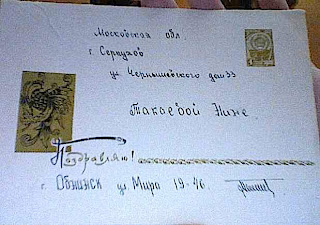 Московская обл.
г. Серпухов
ул. Чернышевского дом 33
Такоевой Нине
Поздравляю!
г. Обнинск ул. Мира 19-46